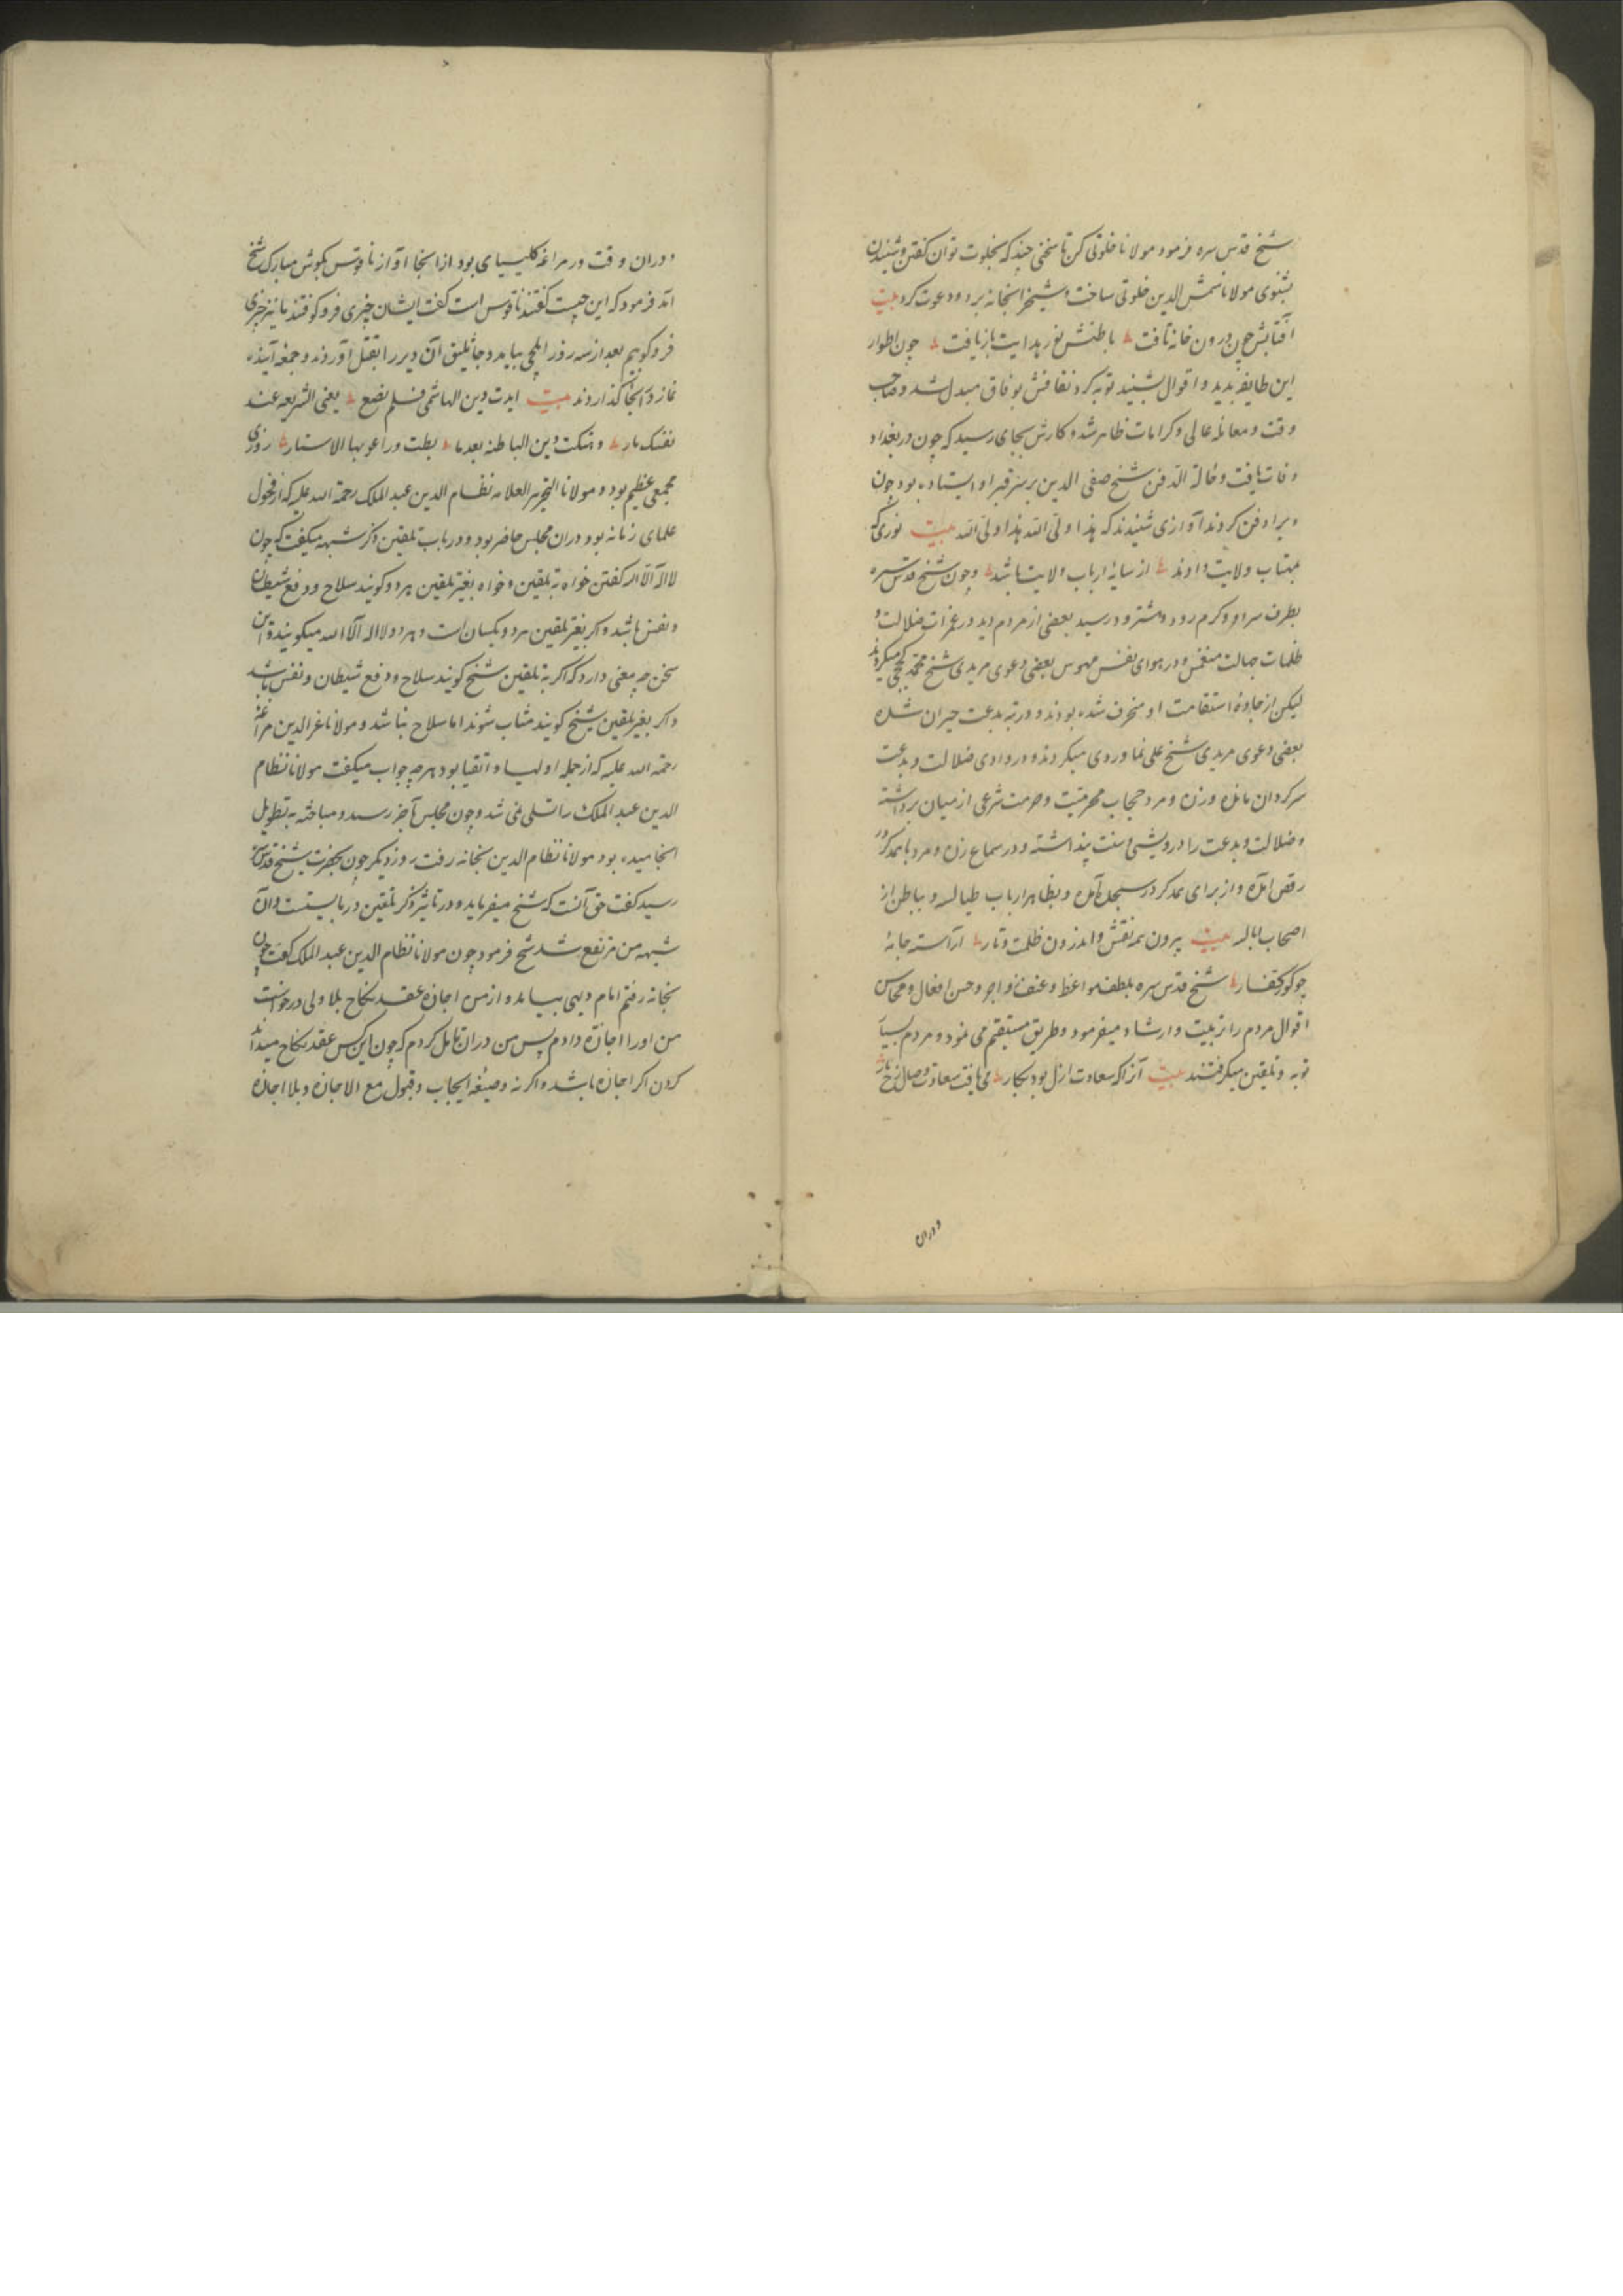 شیخ قدس سره فرمود مولانا خلوتی کن تا سخنی چند که بخلوت توان کفتن و شنیدن
بشنوی مولانا شمس الدین خلوتی ساخت و شیخ را بخانه برد و دعوت کرد بیت
آفتابش چون درون خانه تافت باطنش نور هدایت بازیافت چون اطوار
این طایفه بدید و اقوال بشنید توبه کرد نفاقش بوفاق مبدل شد و صاحب
وقت و معامله عالی و کرامات ظاهر شد و کارش بجای رسید که چون در بغداد
وفات یافت و حالة الدفن شیخ صفی الدین بر سر قبر او ایستاده بود چون
ویرا دفن کردند آوازی شنیدند که هذا ولی الله هذا ولی الله بیت نوری که
بمهتاب ولایت دادند از سایهٔ ارباب ولایت باشد و چون شیخ قدس سره
بطرف سراو و کرم رود و هشترود رسید بعضی از مردم دید در غمرات ضلالت و
ظلمات جهالت منغمس و در هوای نفس مهوس بعضی دعوی مریدی شیخ محمد کججی میکردند
لیکن از جادهٔ استقامت او منحرف شده بودند و در تیه بدعت حیران شده
بعضی دعوی مریدی شیخ علی نماوردی میکردند و در وادی ضلالت و بدعت
سرکردان مانده و زن و مرد حجاب محرمیت و حرمت شرعی از میان برداشته
و ضلالت و بدعت را درویشی و سنت پنداشته و در سماع زن و مرد با همدکر در
رقص آمده و از برای همدکر در سجده آمده و بظاهر ارباب طیالسه و بباطن از
اصحاب ابالسه بیت بیرون همه نقش و اندرون ظلمت و تار آراسته جامهٔ
چو کور کفار شیخ قدس سره بلطف مواعظ و عنف زواجر و حسن افعال و محاسن
اقوال مردم را تربیت و ارشاد میفرمود و طریق مستقیم می نمود و مردم بسیار
توبه و تلقین میکرفتند بیت آنرا که سعادت ازل بود بکار می یافت سعادت وصال رخ یار
و دران
و دران وقت در مراغه کلیسیای بود از انجا آواز ناقوس بکوش مبارک شیخ
آمد فرمود که این چیست کفتند ناقوس است کفت ایشان چیزی فرو کوفتند ما نیز چیزی
فرو کوبیم بعد از سه روز ایلچی بیامد و جاثلیق آن دیر را بقتل آوردند و جمعه آینده
نماز در آنجا کذاردند بیت ابدت دین الهاشمی فلم تضع یعنی الشریعه عند
نفسک بار و هتکت دین الباطنه بعد ما بطت وراعوبها الاستار روزی
مجمعی عظیم بود و مولانا النحریر العلامه نظام الدین عبد الملک رحمة الله علیه که از فحول
علمای زمانه بود دران مجلس حاضر بود و در باب تلقین ذکر شبهه میکفت که چون
لا اله الا الله کفتن خواه به تلقین و خواه بغیر تلقین هر دو کویند سلاح و دفع شیطان
و نفس باشد و اکر بغیر تلقین هر دو یکسان است و هر دو لا اله الا الله میکویند و این
سخن چه معنی دارد که اکر به تلقین شیخ کویند سلاح و دفع شیطان و نفس باشد
و اکر بغیر تلقین شیخ کویند مثاب شوند اما سلاح نباشد و مولانا عز الدین مراغه
رحمة الله علیه که از جمله اولیا و اتقیا بود هر چه جواب میکفت مولانا نظام
الدین عبد الملک را تسلی نمی شد و چون مجلس بآخر رسید و مباحثه به تطویل
انجامیده بود مولانا نظام الدین بخانه رفت روز دیکر چون بحضرت شیخ قدس سره
رسید کفت حق آنست که شیخ میفرماید و در تاثیر ذکر تلقین دربایستست و آن
شبهه من مرتفع شد شیخ فرمود چون مولانا نظام الدین عبد الملک کفت چون
بخانه رفتم امام دیهی بیامد و از من اجازه عقد نکاح بلا ولی درخواست
من او را اجازه دادم پس من دران تامل کردم که چون این کس عقد نکاح میداند
کردن اکر اجازه باشد و اکر نه و صیغه ایجاب و قبول مع الاجازه و بلا اجازه